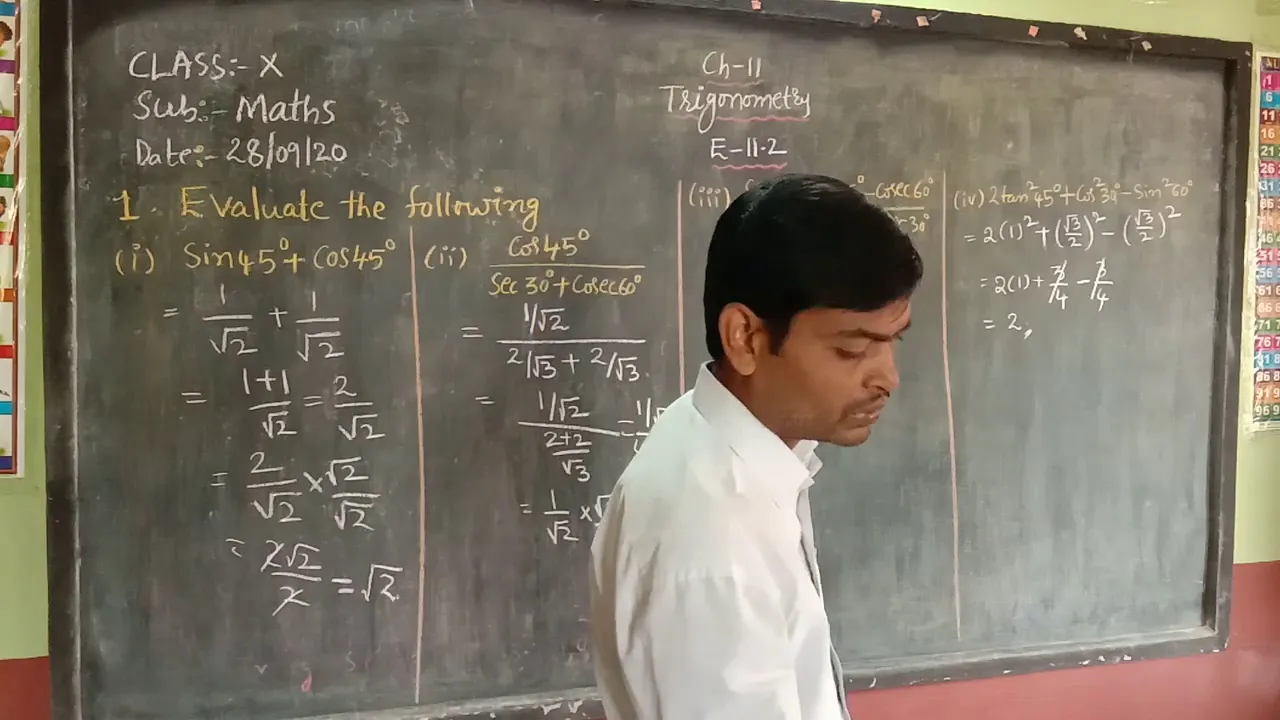 CLASS:- X
Sub:- Maths
Date:- 28/09/20
Ch-11
Trigonometry
E-11.2
1. Evaluate the following
(i) Sin45°+Cos45°
= 1/√2 + 1/√2
= 1+1/√2 = 2/√2
= 2/√2 × √2/√2
= 2√2/2 = √2
(ii) Cos45°/Sec30°+Cosec60°
= 1/√2 / 2/√3 + 2/√3
= 1/√2 / 2+2/√3 =
= 1/√2 ×
(iii)
° - Cosec60°
30°
(iv) 2tan²45°+Cos²30°-Sin²60°
= 2(1)²+(√3/2)²-(√3/2)²
= 2(1)+3/4-3/4
= 2,
1
6
11
16
21
26
31